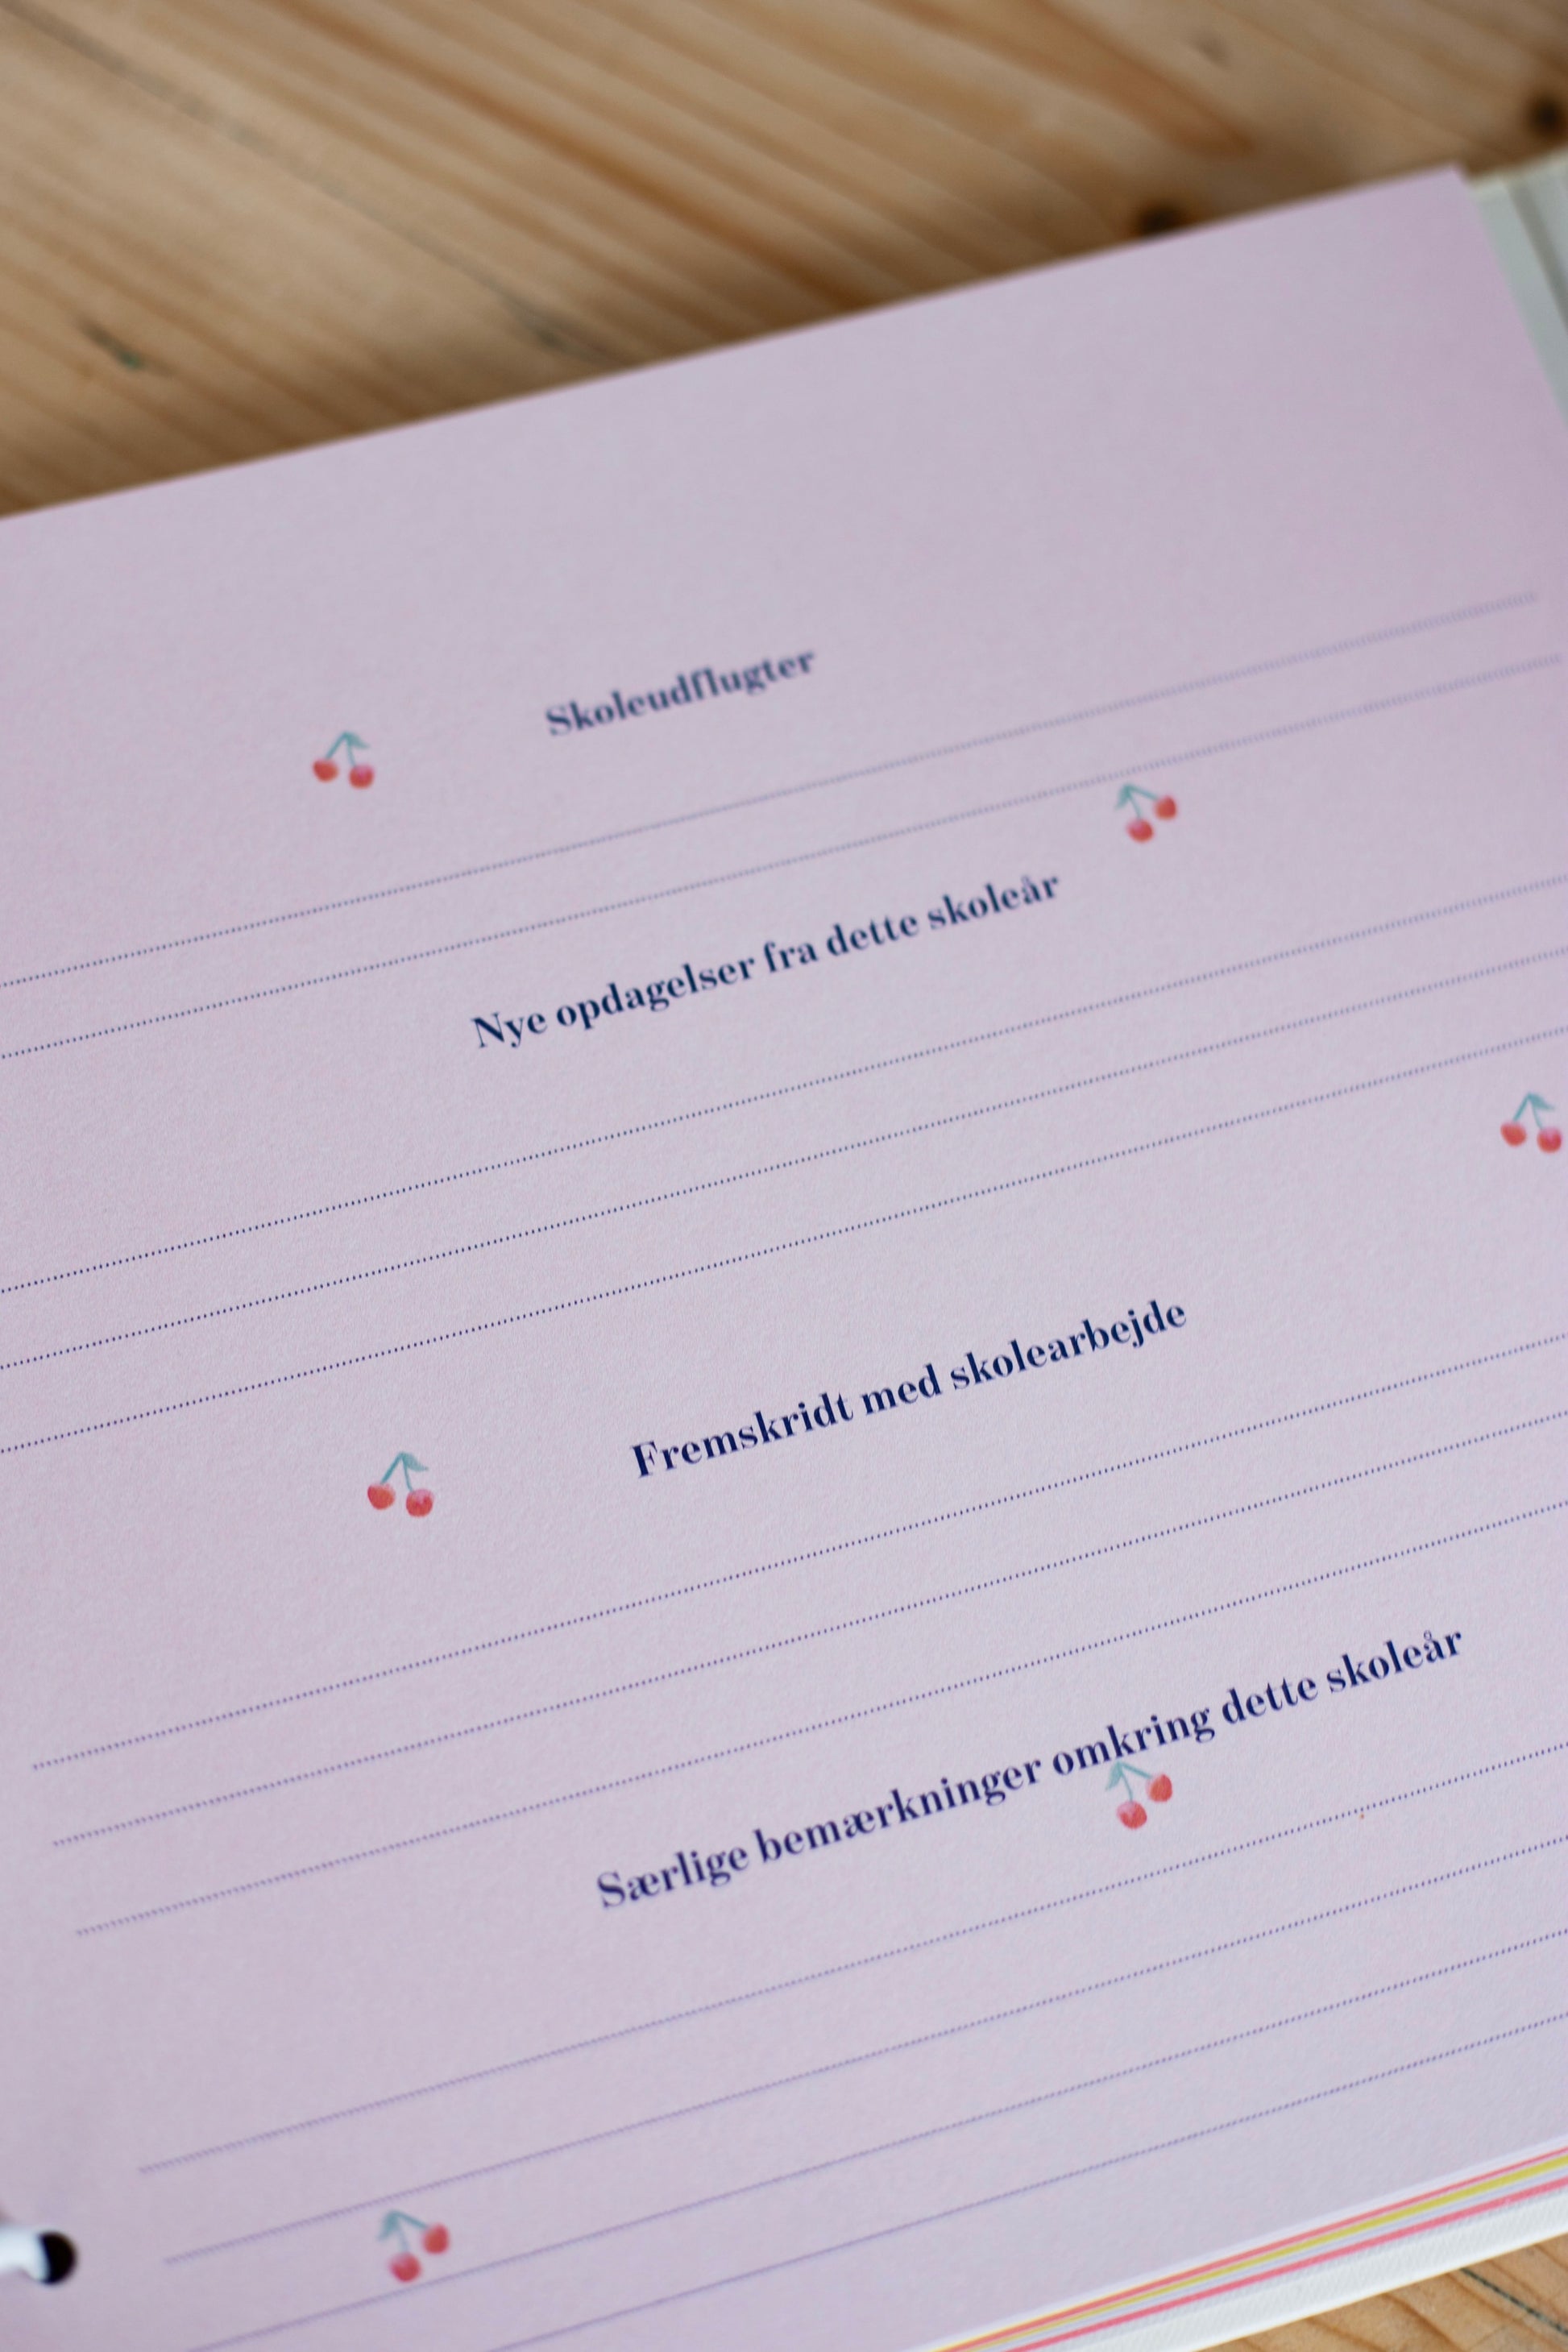 Skoleudflugter
Nye opdagelser fra dette skoleår
Fremskridt med skolearbejde
Særlige bemærkninger omkring dette skoleår